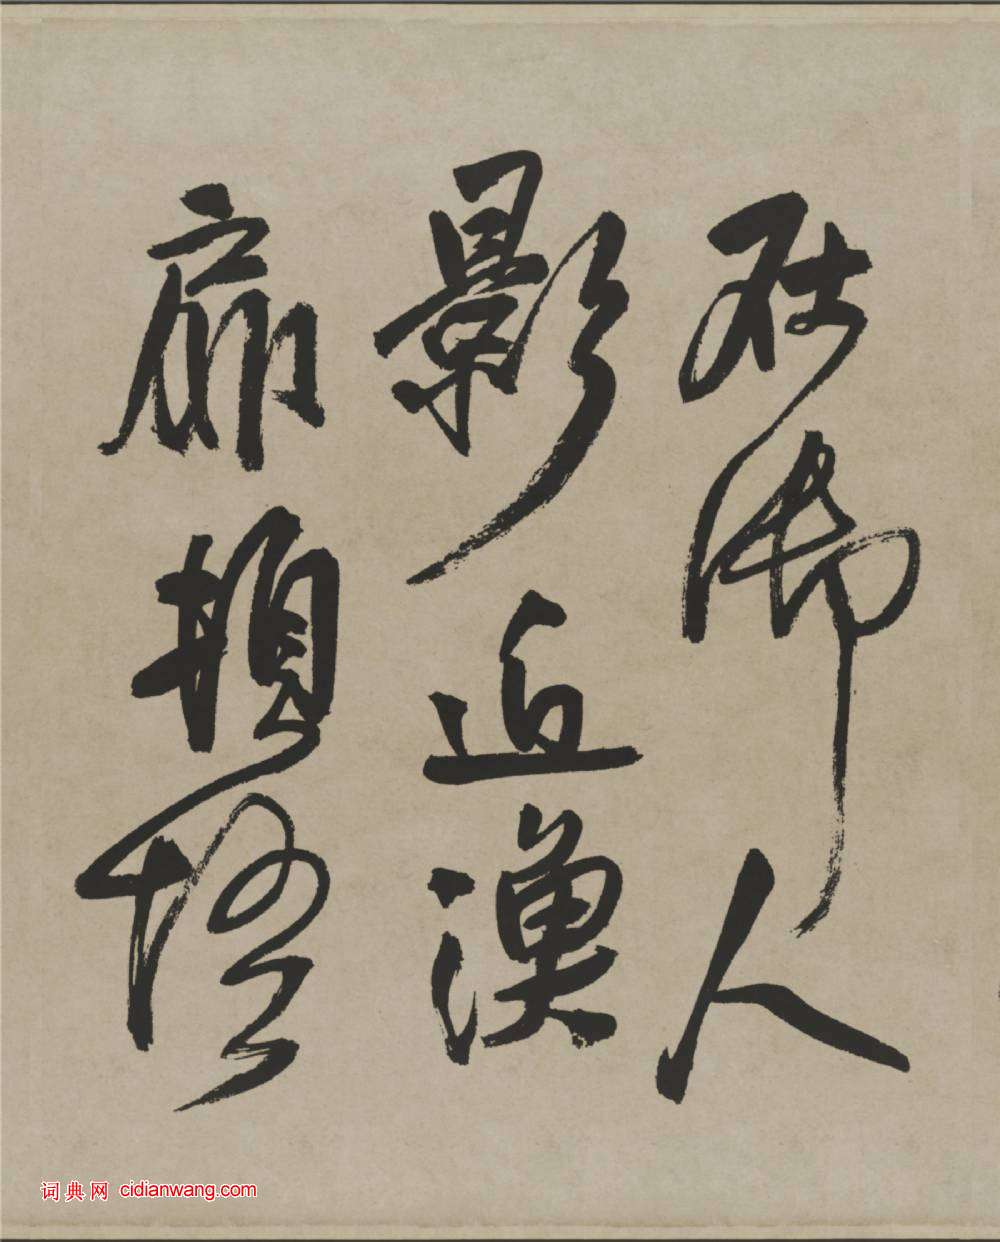 人
影近漁
扉頓悟
词典网 cidianwang.com